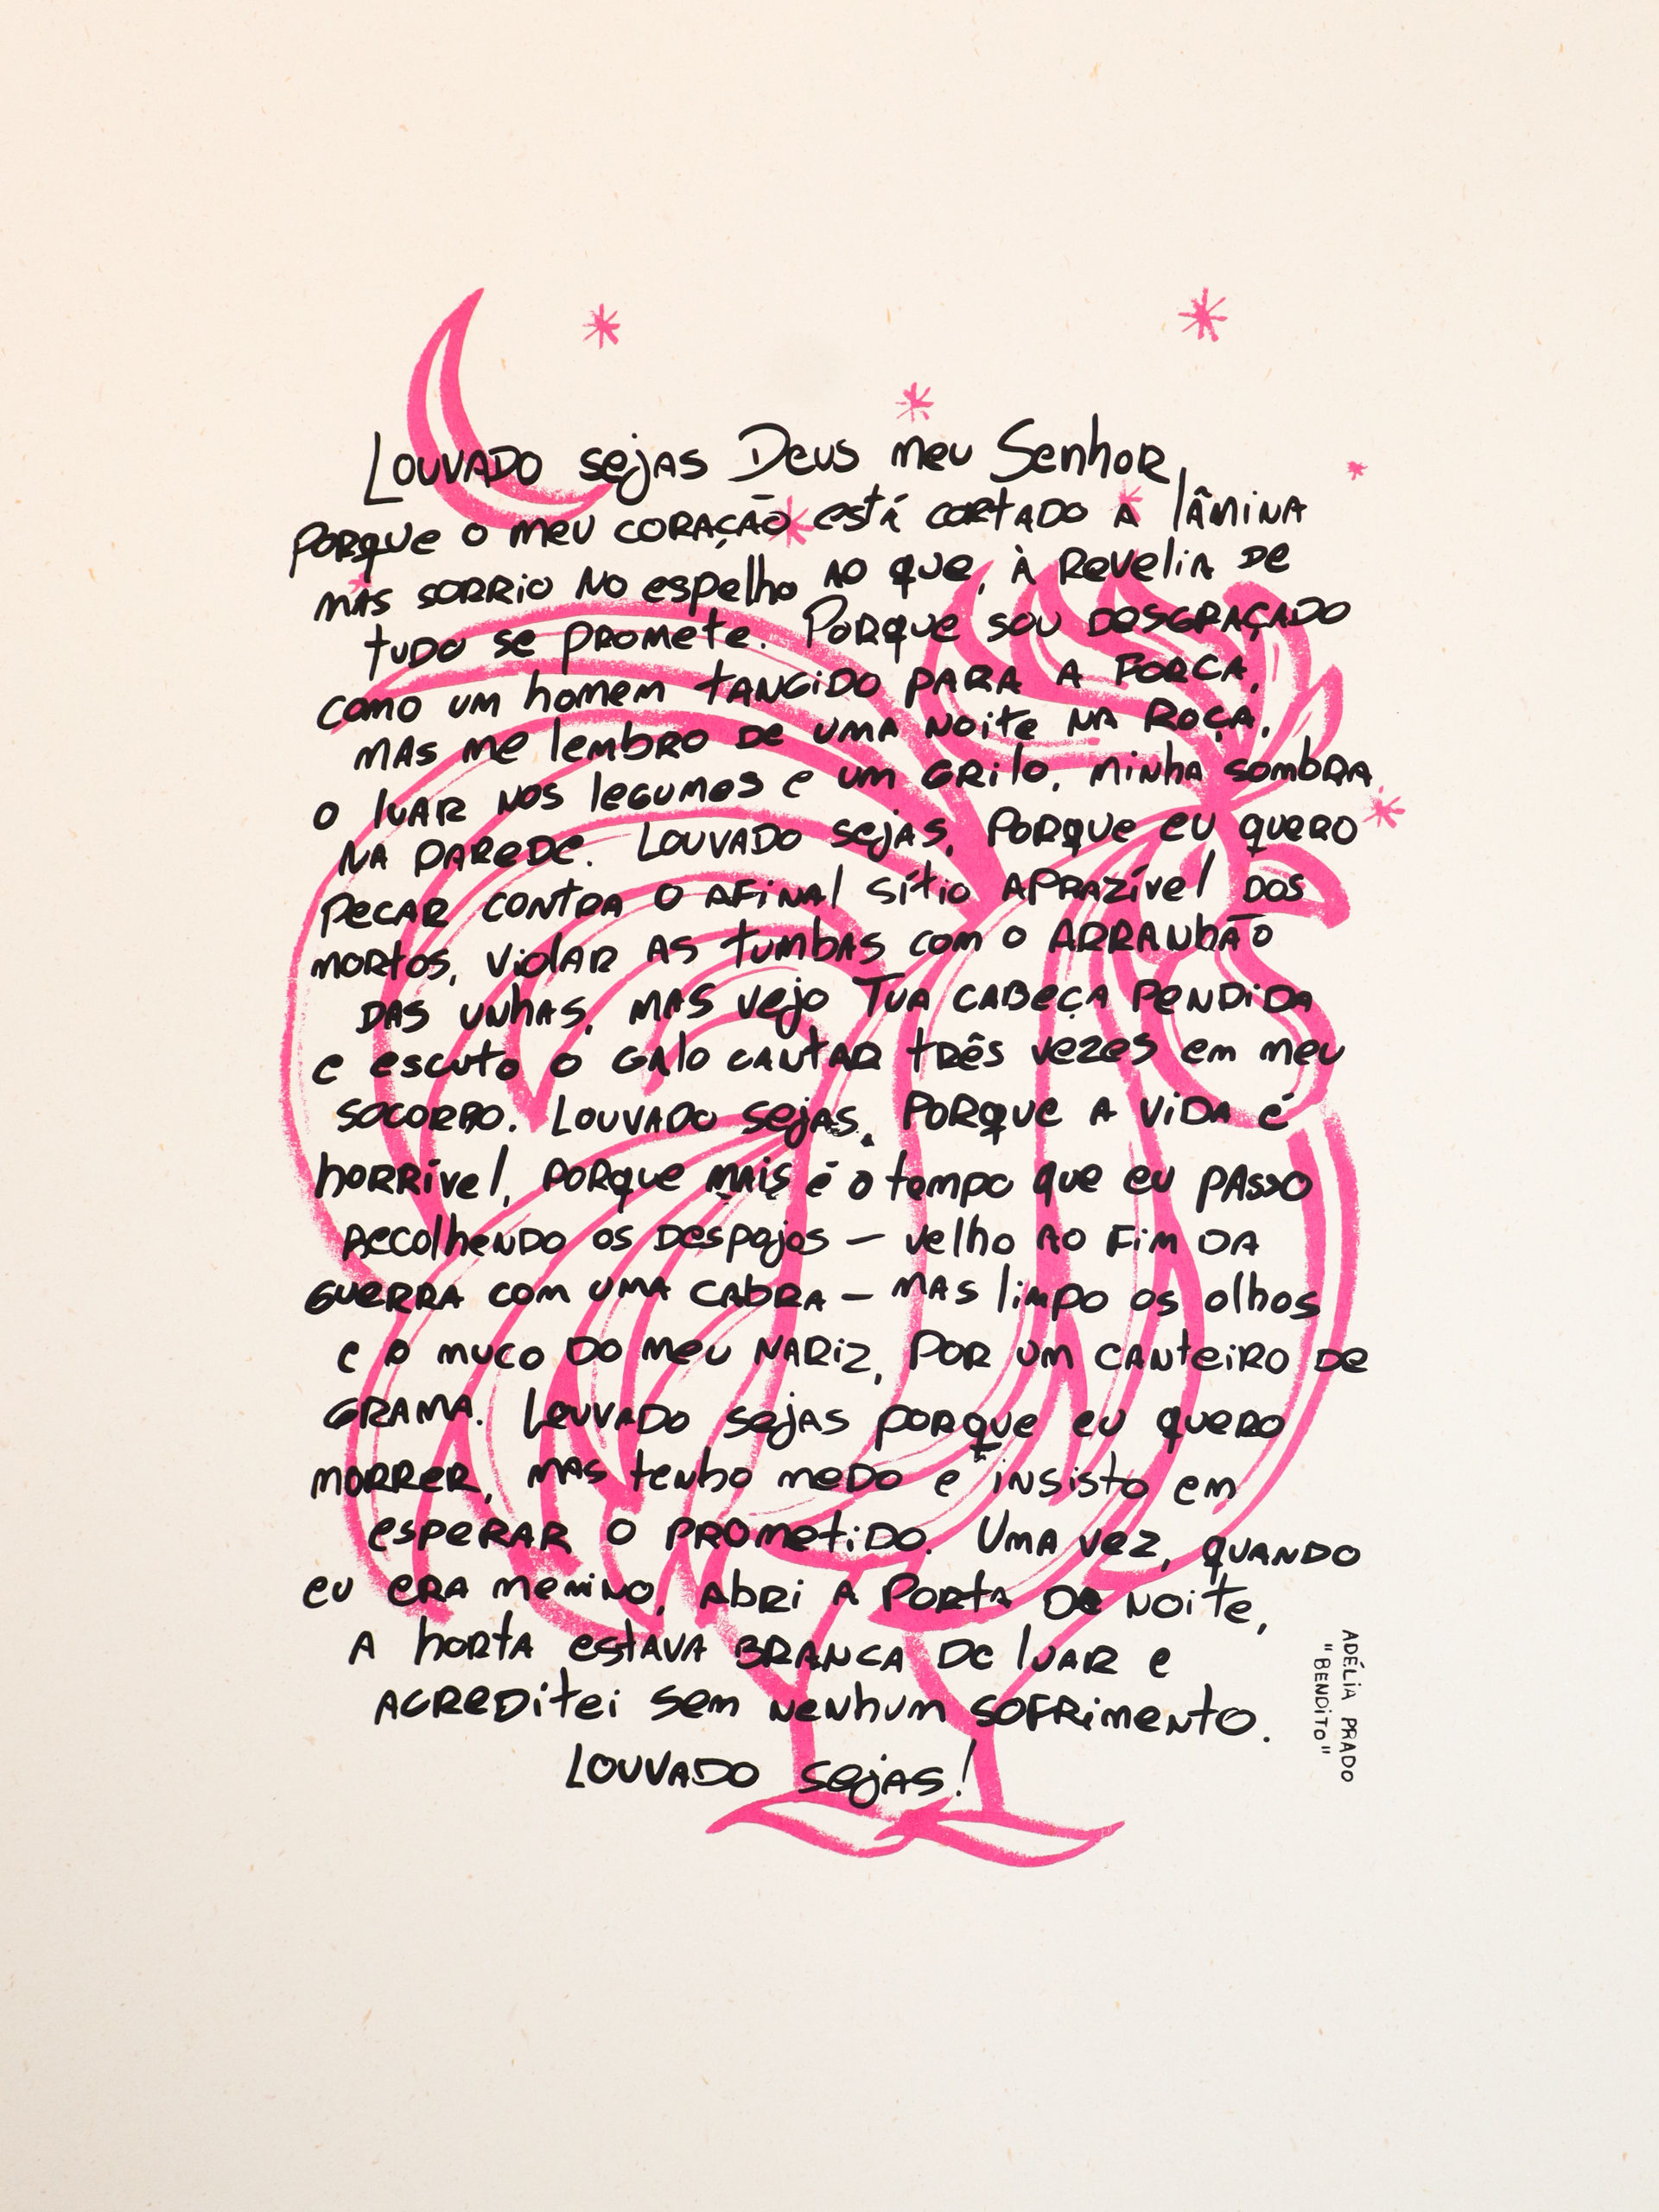 Louvado sejas Deus meu Senhor,
porque o meu coração está cortado a lâmina
mas sorrio no espelho ao que, à revelia de
tudo se promete. Porque sou desgraçado
como um homem tangido para a forca,
mas me lembro de uma noite na roça,
o luar nos legumes e um grilo, minha sombra
na parede. Louvado sejas, porque eu quero
pecar contra o afinal sítio aprazível dos
mortos, violar as tumbas com o arranhão
das unhas, mas vejo Tua cabeça pendida
e escuto o galo cantar três vezes em meu
socorro. Louvado sejas, porque a vida é
horrível, porque mais é o tempo que eu passo
recolhendo os despojos — velho ao fim da
guerra com uma cabra — mas limpo os olhos
e o muco do meu nariz, por um canteiro de
grama. Louvado sejas porque eu quero
morrer, mas tenho medo e insisto em
esperar o prometido. Uma vez, quando
eu era menino, abri a porta de noite,
a horta estava branca de luar e
acreditei sem nenhum sofrimento.
Louvado sejas!
Adélia Prado
"Bendito"